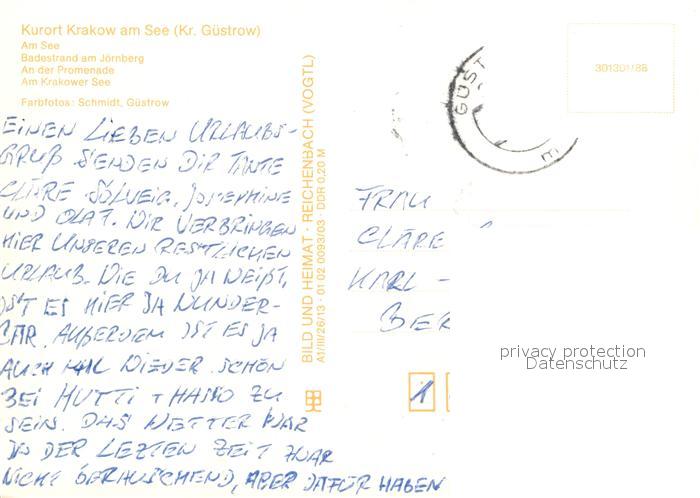 Kurort Krakow am See (Kr. Güstrow)
Am See
Badestrand am Jörnberg
An der Promenade
Am Krakower See
Farbfotos: Schmidt, Güstrow
EINEN LIEBEN URLAUBS-
GRUß SENDEN DIR TANTE
CLÄRE SÖLVEIG, JOSEPHINE
UND OLAF. WIR VERBRINGEN
HIER UNSEREN RESTLICHEN
URLAUB. WIE DU JA WEIßT,
IST ES HIER JA WUNDER-
BAR. AUßERDEM IST ES JA
AUCH MAL WIEDER SCHÖN
BEI MUTTI + HASSO ZU
SEIN. DAS WETTER WAR
IN DER LEZTEN ZEIT ZWAR
NICHT BERAUSCHEND, ABER DAFÜR HABEN
BILD UND HEIMAT · REICHENBACH (VOGTL)
A1/III/26/13 · 01 02 0093/03 · DDR 0,20 M
GÜST
E
301301/88
FRAU
CLÄRE
KARL-
BER
1
privacy protection
Datenschutz